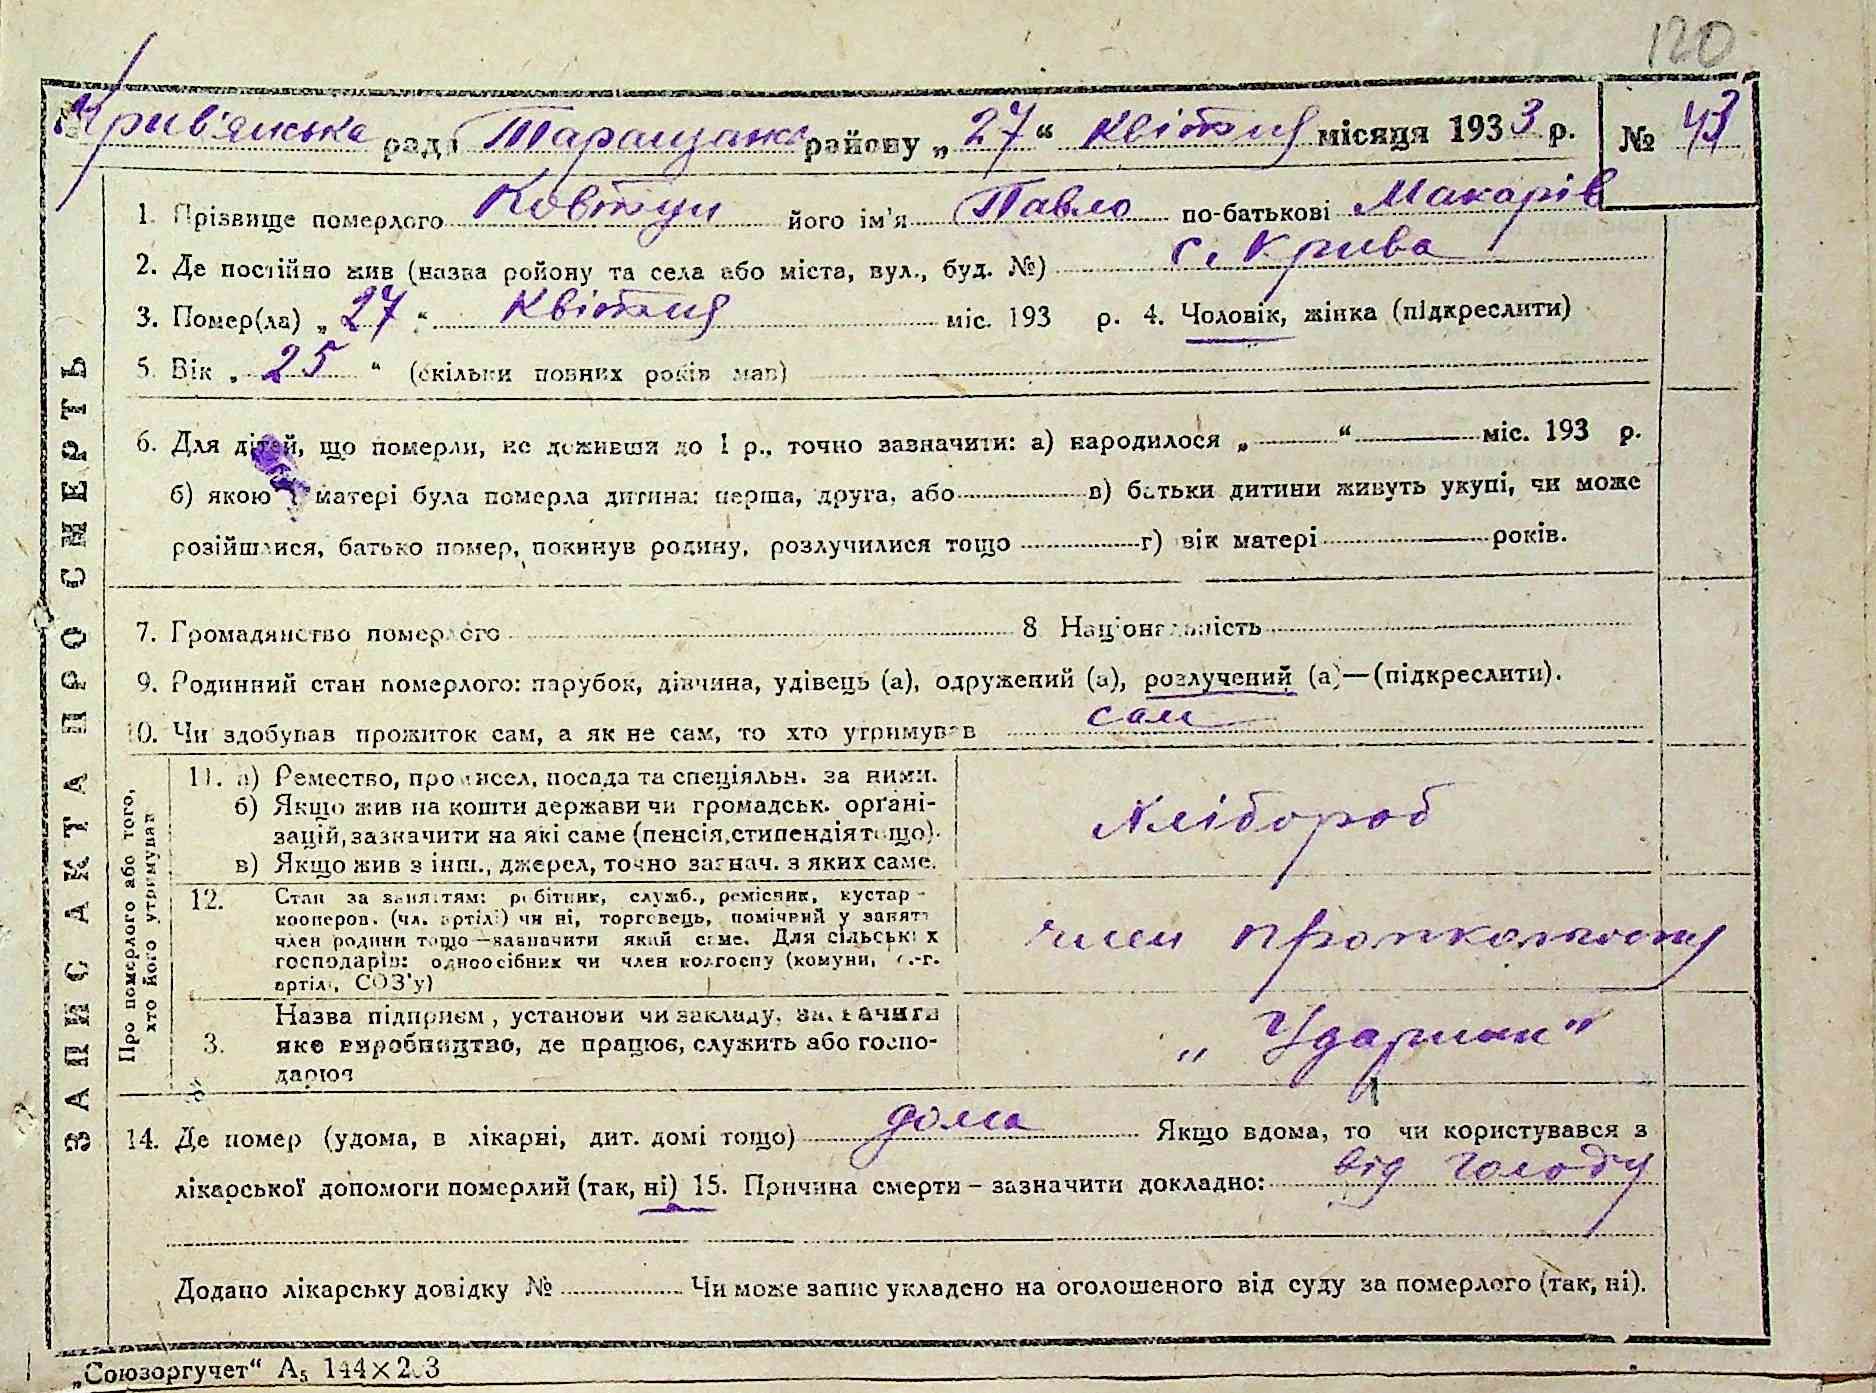 120
Крив'янська рада Таращанс району „27“ квітня місяця 1933 р. № 43
ЗАПИС АКТА ПРО СМЕРТЬ
1. Прізвище померлого Ковтун його ім'я Павло по-батькові Макарів
2. Де постійно жив (назва району та села або міста, вул., буд. №) с. Крива
3. Помер(ла) „27“ Квітня міс. 193 р. 4. Чоловік, жінка (підкреслити)
5. Вік „25“ (скільки повних років мав)
6. Для дітей, що померли, не доживши до 1 р., точно зазначити: а) народилося „ “ міс. 193 р.
б) якою у матері була померла дитина: перша, друга, або в) батьки дитини живуть укупі, чи може
розійшлися, батько помер, покинув родину, розлучилися тощо г) вік матері років.
7. Громадянство померлого 8 Національність
9. Родинний стан померлого: парубок, дівчина, удівець (а), одружений (а), розлучений (а)—(підкреслити).
10. Чи здобував прожиток сам, а як не сам, то хто утримував сам
Про померлого або того,
хто його утримував
11. а) Ремество, промисел, посада та спеціяльн. за ними.
б) Якщо жив на кошти держави чи громадськ. органі-
зацій, зазначити на які саме (пенсія, стипендія тощо).
в) Якщо жив з інш., джерел, точно зазнач. з яких саме.
Хлібороб
12. Стан за заняттям: робітник, служб., ремісник, кустар-
кооперов. (чл. артілі) чи ні, торговець, помічний у занятт
член родини тощо—зазначити який саме. Для сільських
господарів: одноосібних чи член колгоспу (комуни, с.-г.
артілі, СОЗ'у)
член
3. Назва підприєм., установи чи закладу, зазначити
яке виробництво, де працює, служить або госпо-
дарює
„Ударник”
14. Де помер (удома, в лікарні, дит. домі тощо) дома Якщо вдома, то чи користувався з
лікарської допомоги померлий (так, ні) 15. Причина смерти – зазначити докладно: від голоду
Додано лікарську довідку № Чи може запис укладено на оголошеного від суду за померлого (так, ні).
„Союзоргучет“ А₅ 144×203